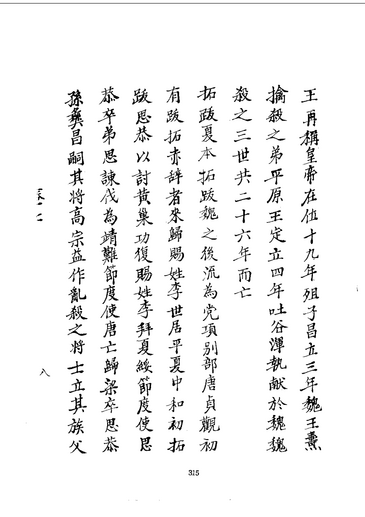 王再稱皇帝在位十九年殂子昌立三年魏王燾
擒殺之弟平原王定立四年吐谷渾執献於魏魏
殺之三世共二十六年而亡
拓跋夏本拓跋魏之後流為党項别部唐貞觀初
有跋拓赤辞者來歸賜姓李世居平夏中和初拓
跋思恭以討黄巢功復賜姓李拜夏綏節度使思
恭卒弟思諫伐為靖難節度使唐亡歸梁卒思恭
孫彝昌嗣其将高宗益作亂殺之将士立其族父
八
315